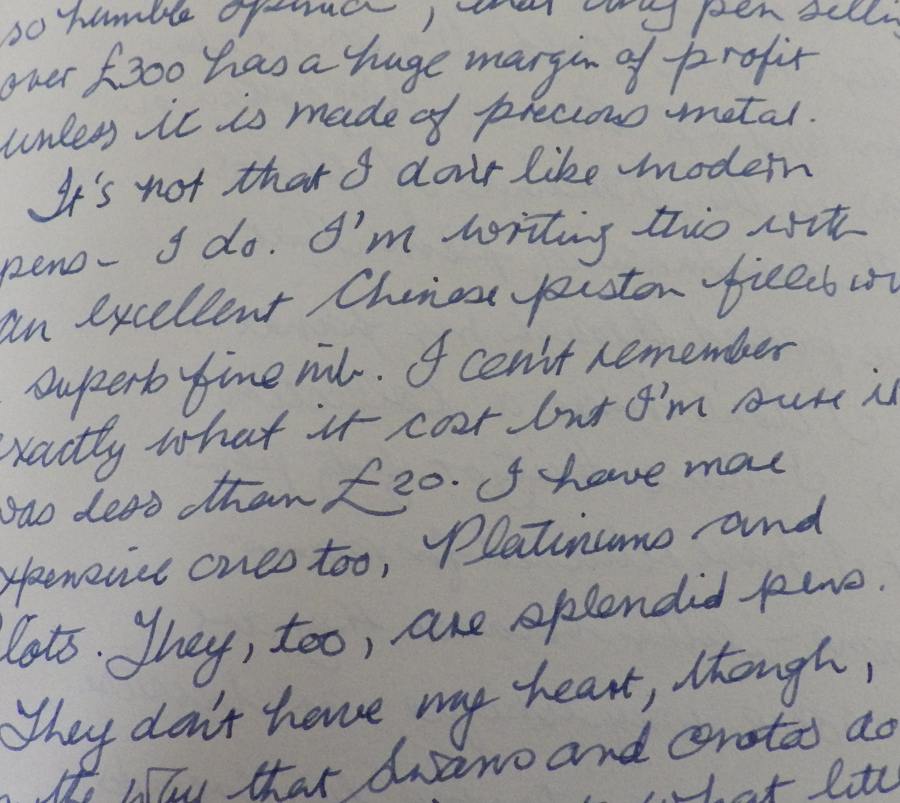 so humble opinion, that any pen selling
over £300 has a huge margin of profit
unless it is made of precious metal.
It's not that I don't like modern
pens - I do. I'm writing this with
an excellent Chinese piston filler
superb fine nib. I can't remember
exactly what it cost but I'm sure it
was less than £20. I have more
xpensive ones too, Platinums and
lots. They, too, are splendid pens.
They don't have my heart, though,
the way that Swans and Onotos do
what litt